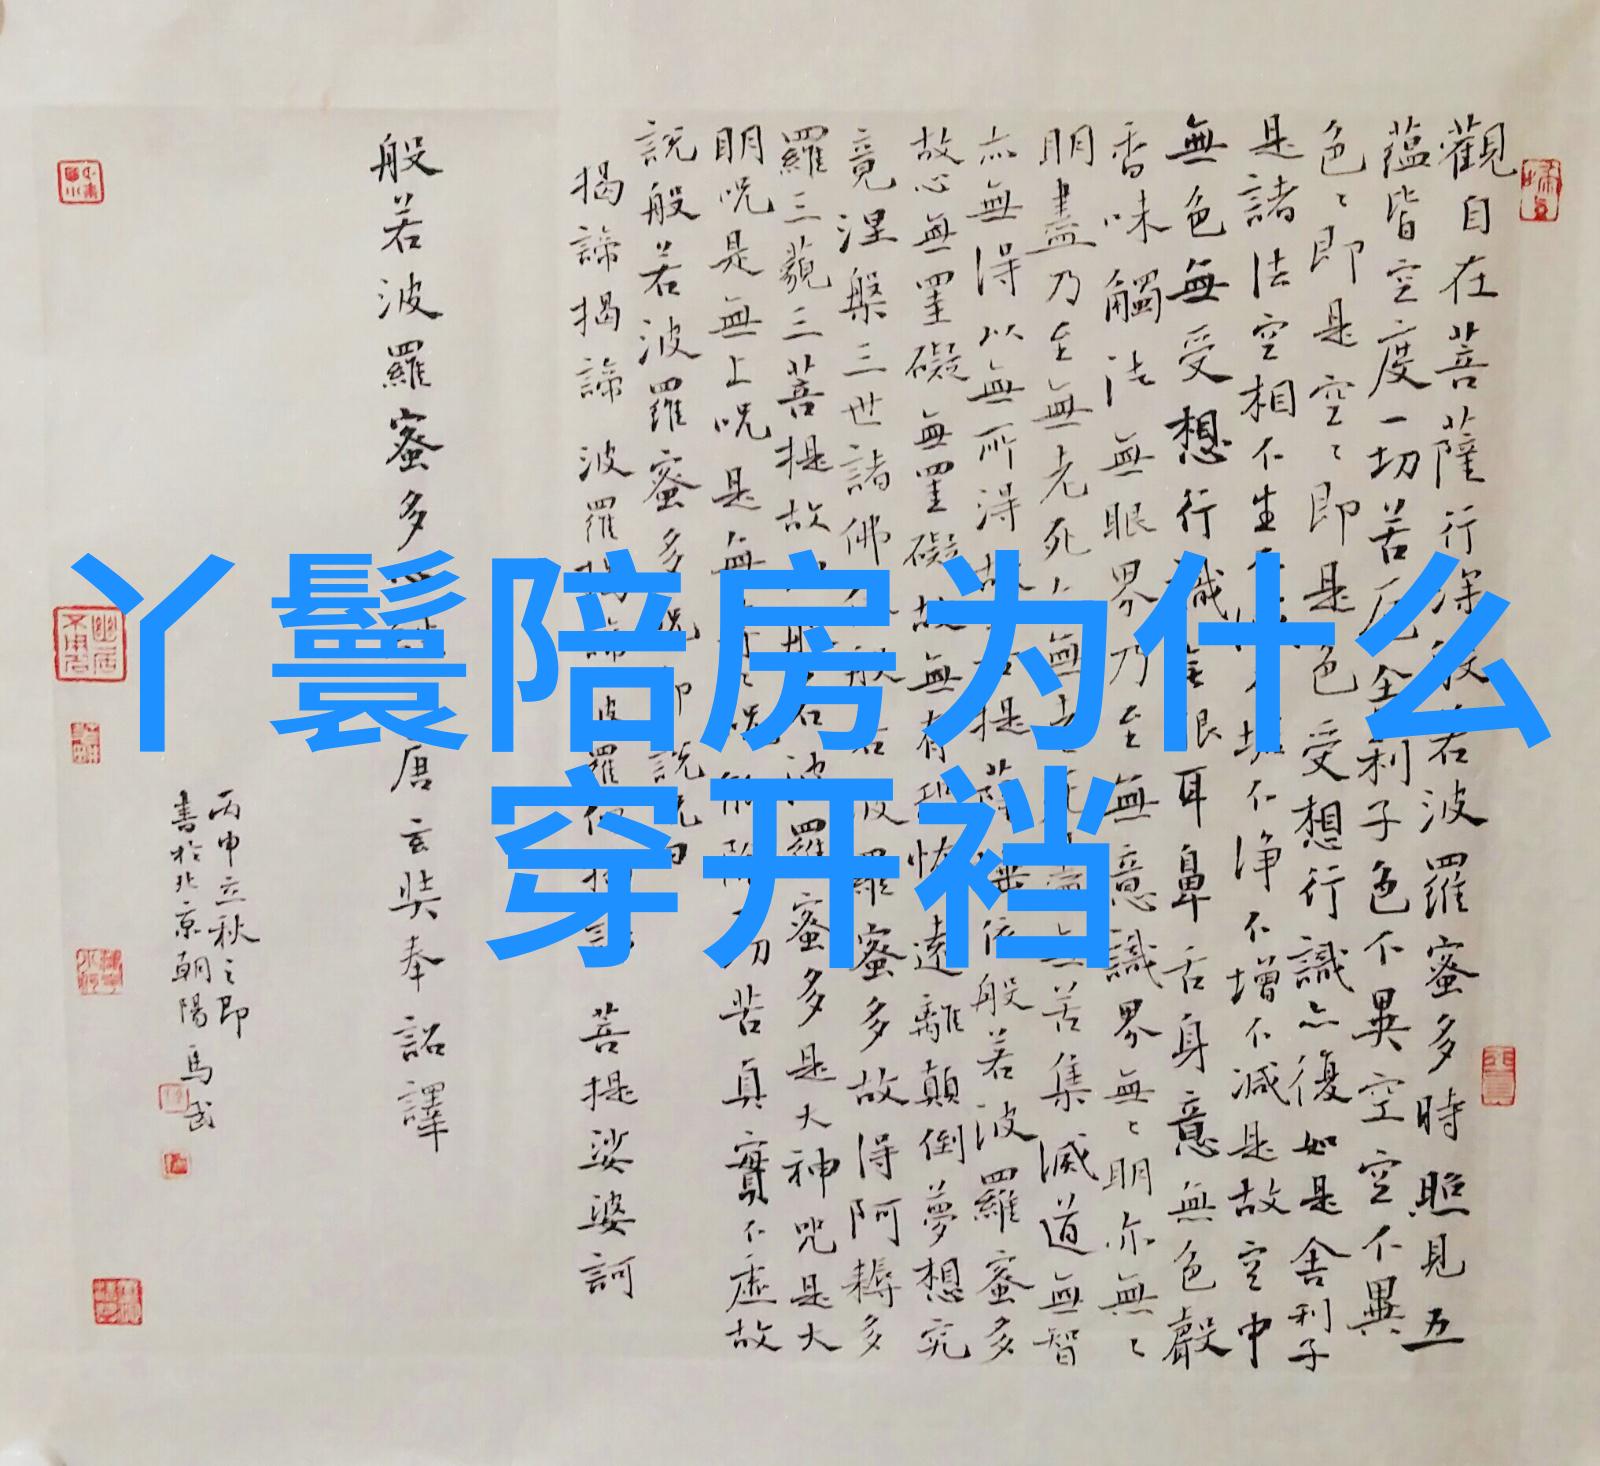 丫鬟陪房为什么
穿开裆
觀自在菩薩行深般若波羅蜜多時照見五
蘊皆空度一切苦厄舍利子色不異空空不異
色色即是空空即是色受想行識亦復如是舍利子
是諸法空相不生不
不淨不增不減是故空中
無色無受想行識無眼耳鼻舌身意無色聲
香味觸法無眼界乃至無意識界無無明亦無無
明盡乃至無老死亦無老
苦集滅道無智
亦無得以無所得故
提薩
依般若波羅蜜多
故心無罣礙無罣礙故無有
怖遠離顛倒夢想究
竟涅槃三世諸佛
般若波羅蜜多故得阿耨多
羅三藐三菩提故
般若波羅蜜多是大神咒是大
明咒是無上咒是無
切苦真實不虛故
說般若波羅蜜多咒即說咒曰
揭諦揭諦 波羅揭諦
菩提娑婆訶
般若波羅蜜多
唐玄奘奉詔譯
丙申立秋之即
書於北京朝陽 馬武